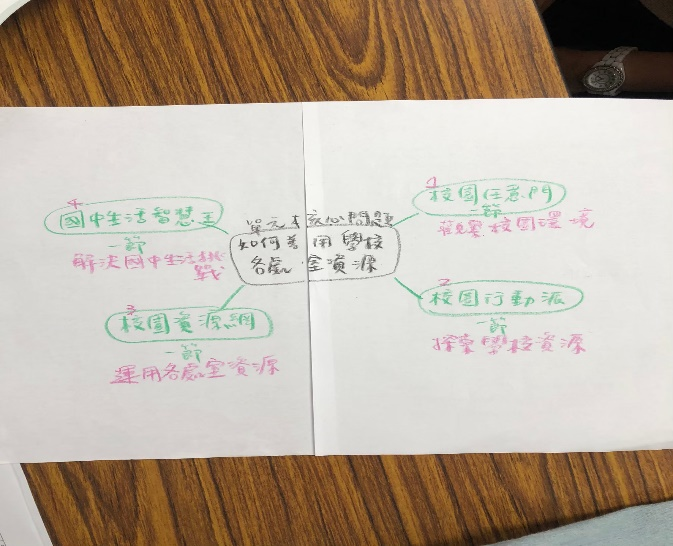 單元核心問題
如何善用學校
各處室資源
1
校園任意門
二節
觀察校園環境
2
校園行動派
一節
探索學校資源
3
校園資源網
一節
運用各處室資源
4
國中生活智慧王
一節
解決國中生活挑
戰